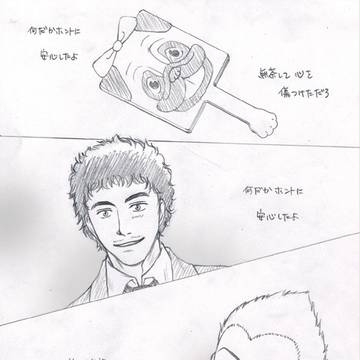 何だかホントに
安心したよ
無茶して心を
傷つけただろ
何だかホントに
安心したよ